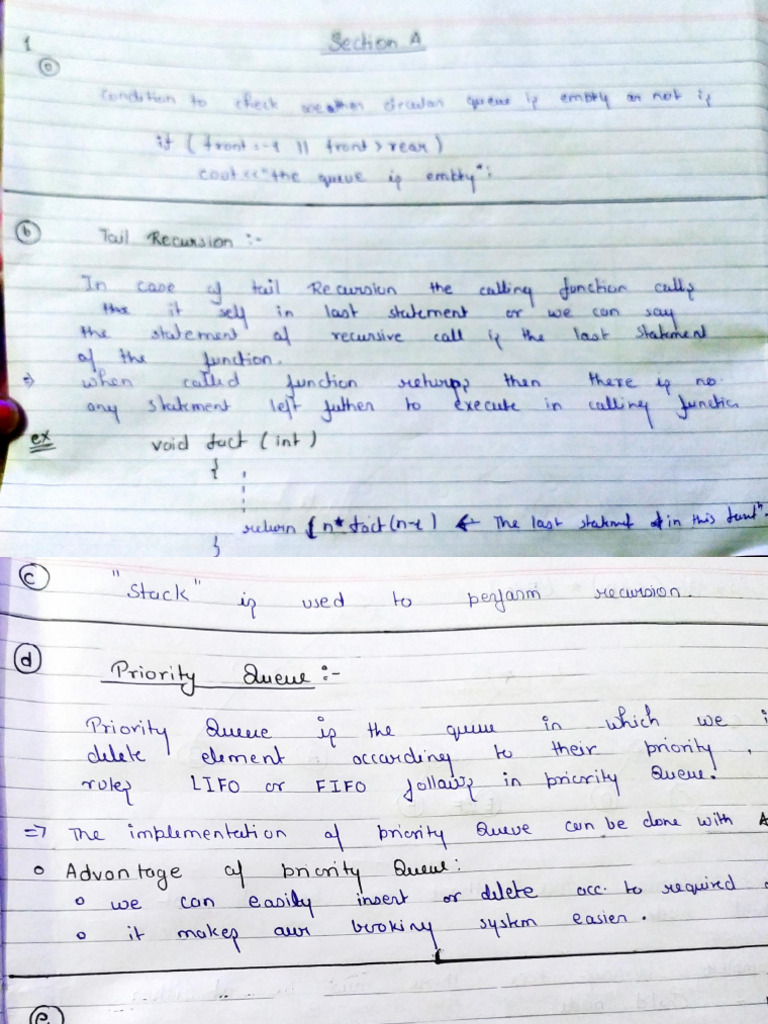 Section A
1
a
Condition to check circular queue is empty or not is
if ( front = -1 || front > rear )
cout << "the queue is empty";
b Tail Recursion :-
In case of tail Recursion the calling function calls
it self in last statement or we can say
the statement of recursive call is the last statement
of the function.
⇒ when called function returns then there is no
any statement left futher to execute in calling
ex void fact ( int )
{
return n* fact (n-1) ← The last in this
}
c "Stack" is used to perform recursion.
d Priority Queue :-
Priority Queue is the queue in which we
delete element according to their priority,
rules LIFO or FIFO follows in priority Queue.
⇒ The implementation of priority Queue can be done with
o Advantage of priority Queue:
o we can easily insert or delete acc. to required
o it makes our booking system easier.
e